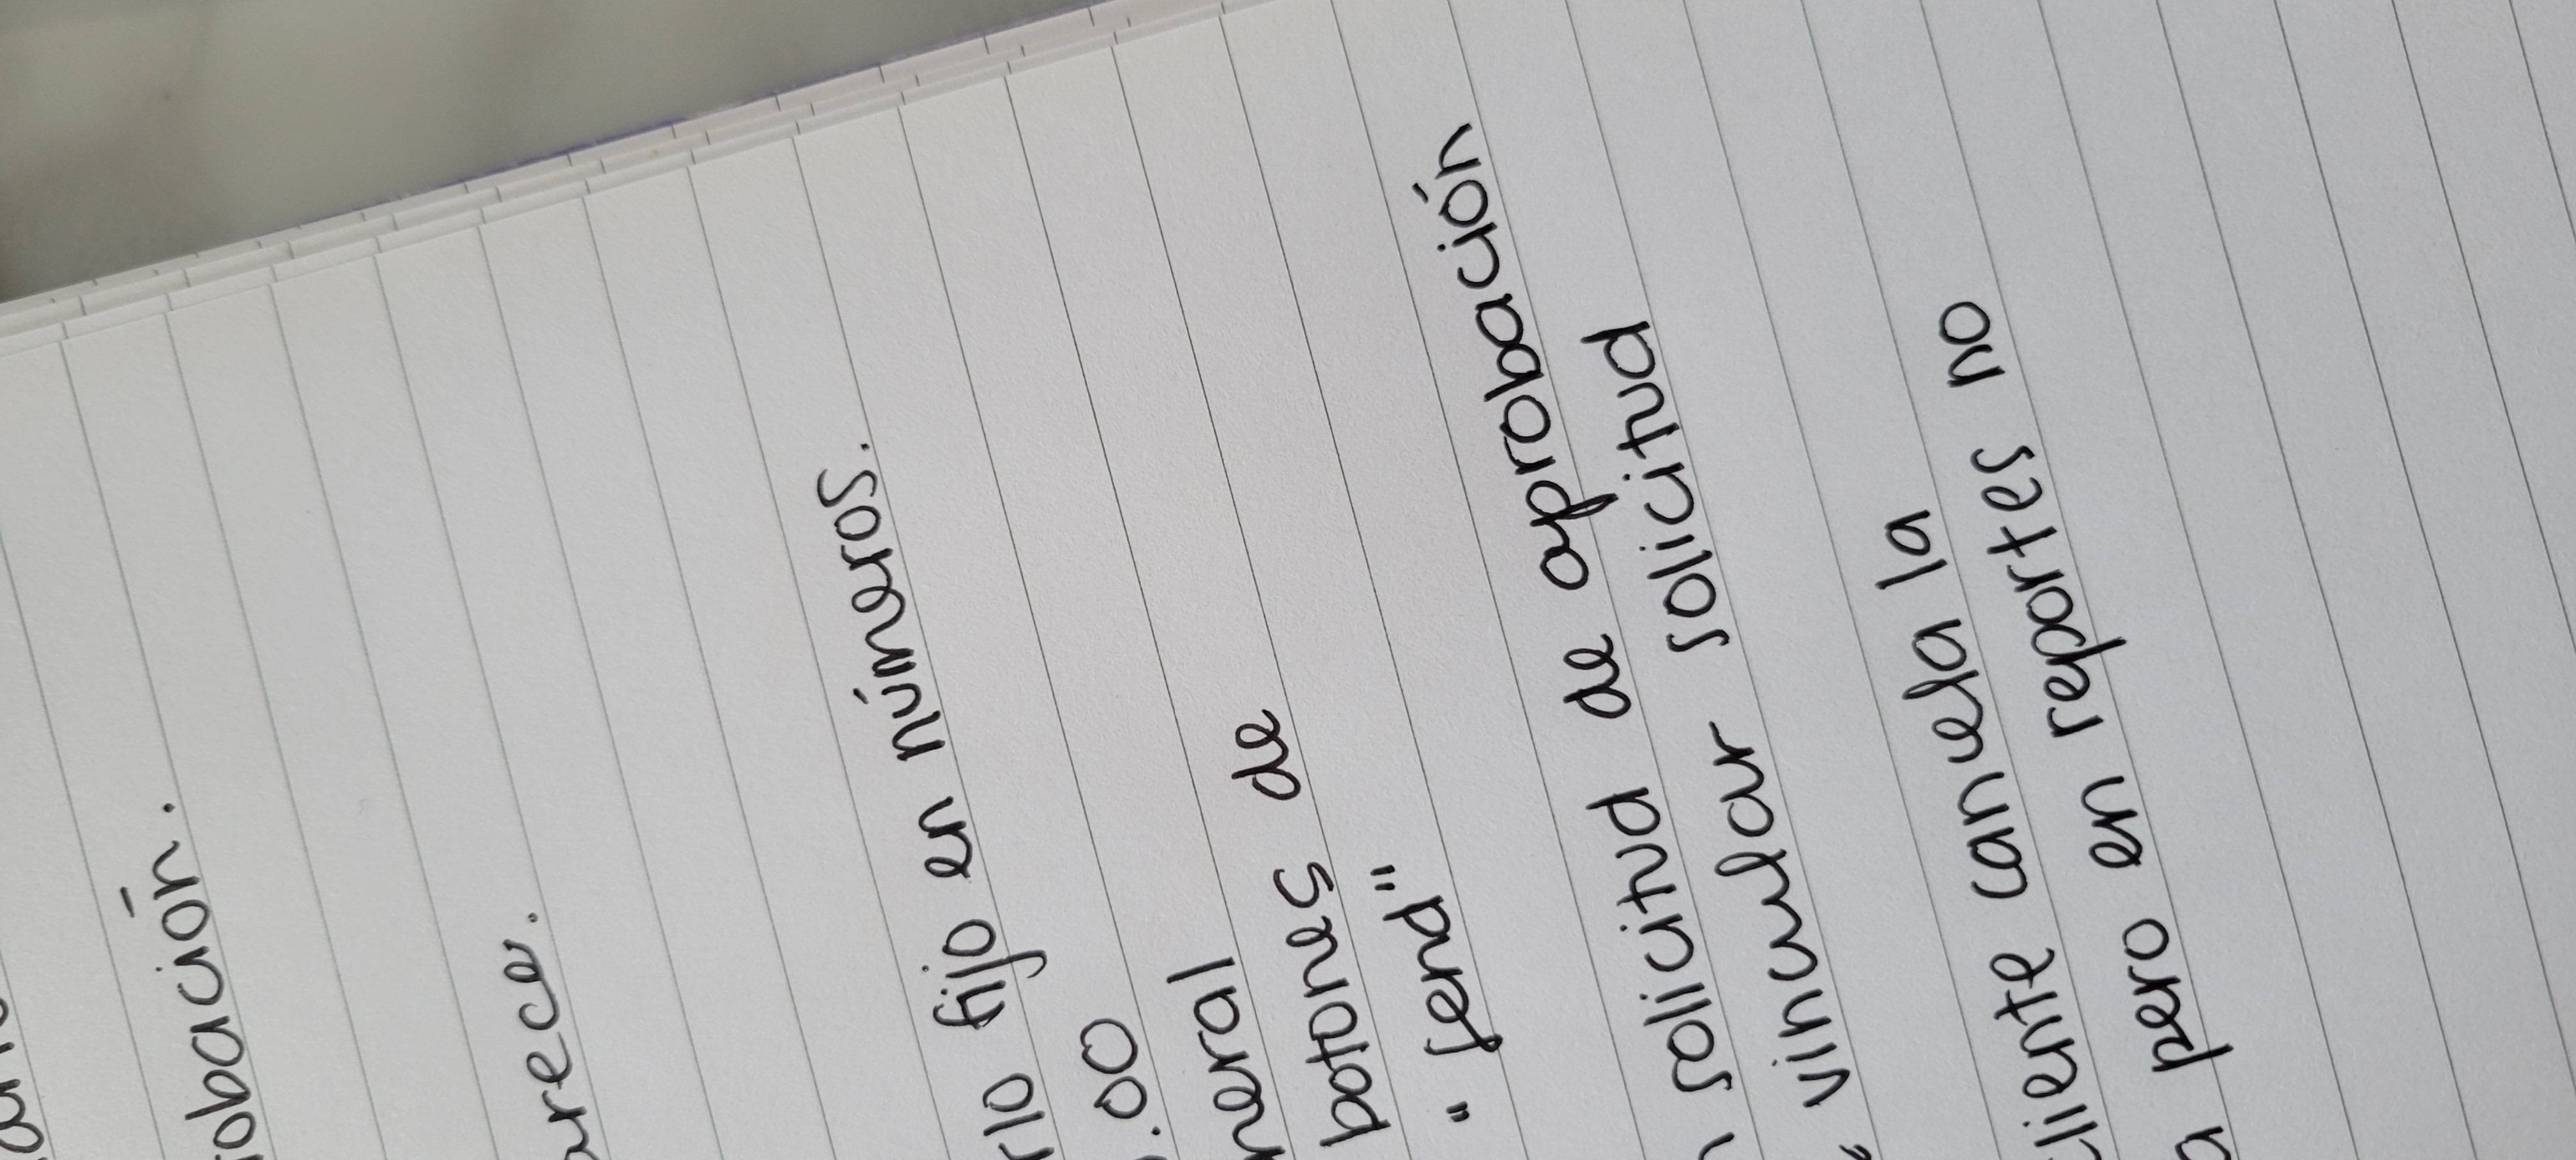 obación.
arece.
rlo fijo en números.
.00
neral
botones de
" fend"
solicitud de aprobación
" vincular solicitud
cliente cancela la
a pero en reportes no